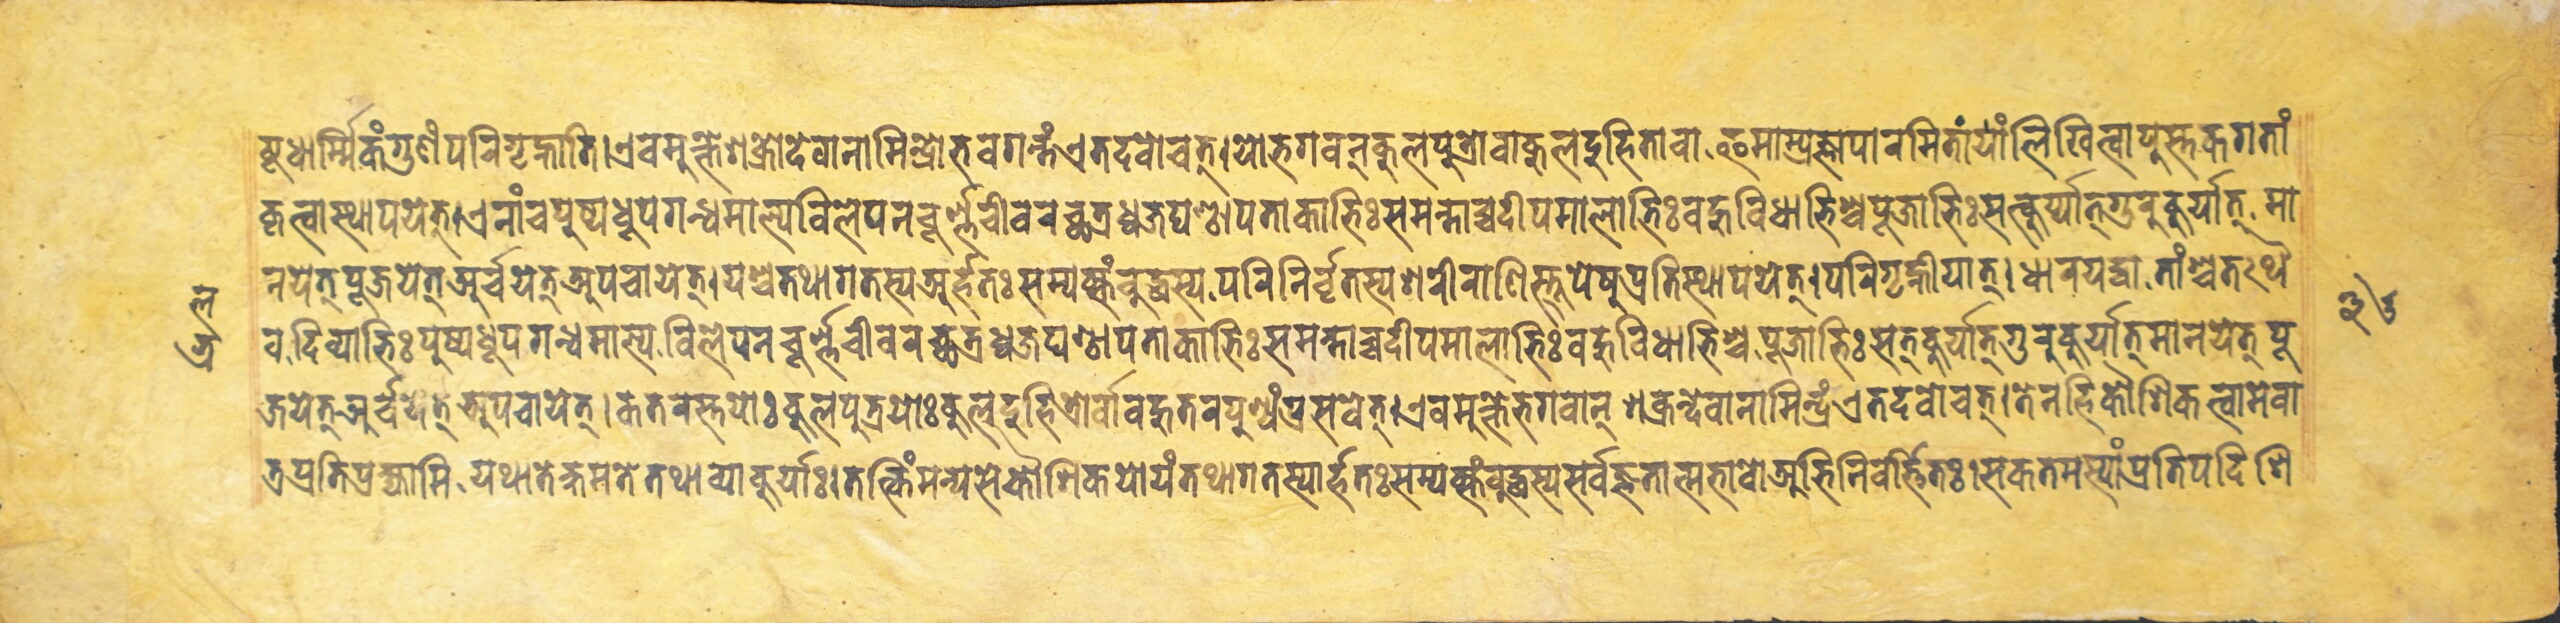 ष्टधार्म्मिकंगुणंपरिगृह्णाति।एवमुक्तेशक्रोदेवानामिन्द्रोभवगन्तंएतदवोचत्।योभगवन्कुलपुत्रोवाकुलदुहितावा इमाम्प्रज्ञापारमितांयांलिखित्वापुस्तकगतां
कृत्वास्थापयेत्।एनांचपुष्पधूपगन्धमाल्यविलेपनचूर्ण्णचीवरच्छत्रध्वजघण्ठापताकाभिःसमन्ताच्चदीपमालाभिःवहुविधाभिश्चपूजाभिःसत्कुर्य्यात्गुरुकुर्यात् मा
नयेत्पूजयेत्अर्च्चयेत्अपचायेत्।यश्चतथागतस्यअर्हतःसम्यक्संबुद्धस्य परिनिर्वृतस्यशरीराणिस्तूपेषुप्रतिस्थापयेत्।परिगृह्णीयात्।धारयद्वा तांश्चतथै
व दिव्याभिःपुष्पधूपगन्धमाल्य विलेपनचूर्ण्णचीवरच्छत्रध्वजघण्ठापताकाभिःसमन्ताच्चदीपमालाभिःवहुविधाभिश्च पूजाभिःसत्कुर्यात्गुरुकुर्यात्मानयेत् पू
जयेत्अर्च्चयेत् अपचायेत्।कतरस्तयोःकुलपुत्रयोःकुलदुहित्रोर्वावहुतरपुण्यंप्रसवेत्।एवमुक्तेभगवान् शक्रन्देवानामिन्द्रंएतदवोचत्।तेनहिकौशिकत्वामेवा
त्रप्रतिप्रक्ष्यामि यथातेक्षमतेतथाव्याकुर्याः।तत्किंमन्यसेकौशिकयोयंतथागतस्यार्हतःसम्यक्संबुद्धस्यसर्वज्ञतात्मभावोअभिनिवर्त्तितः।सकतमस्यांप्रतिपदिशि